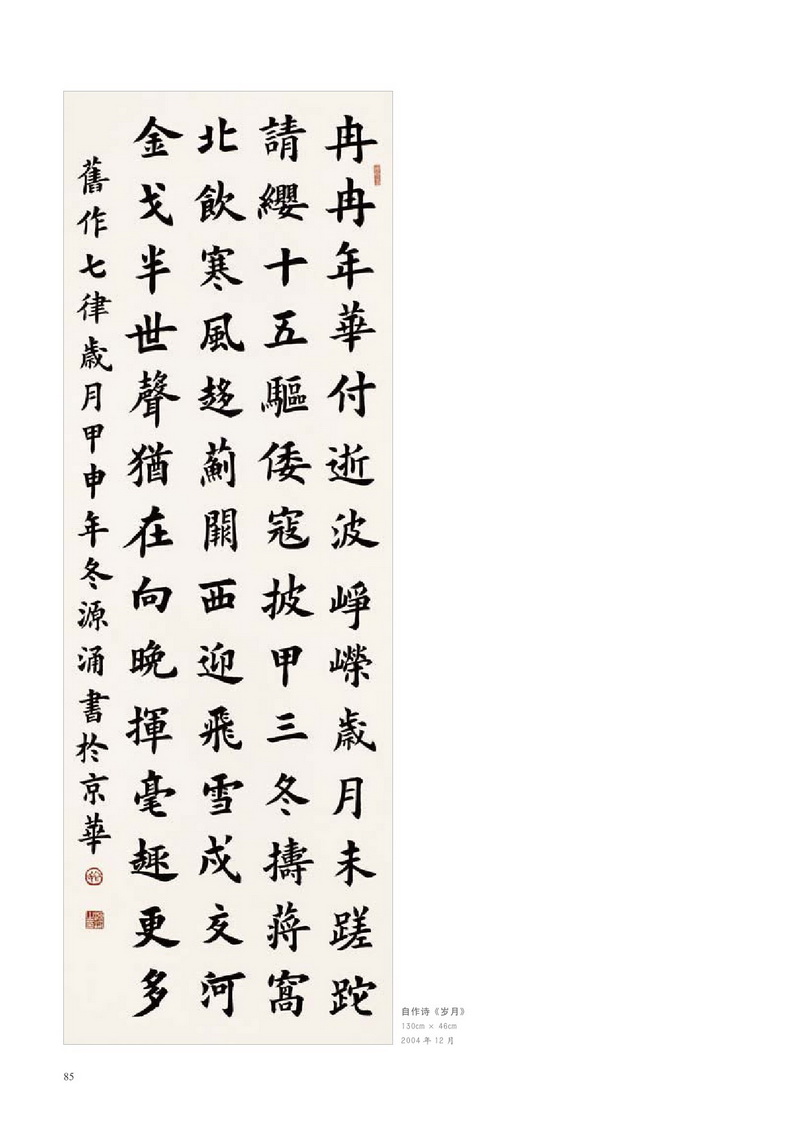 冉冉年華付逝波崢嶸歲月未蹉跎
請纓十五驅倭寇披甲三冬擣蔣窩
北飲寒風趍薊關西迎飛雪戍交河
金戈半世聲猶在向晚揮毫趣更多
舊作七律歲月甲申年冬源涌書於京華
自作诗《岁月》
130cm × 46cm
2004 年 12 月
85